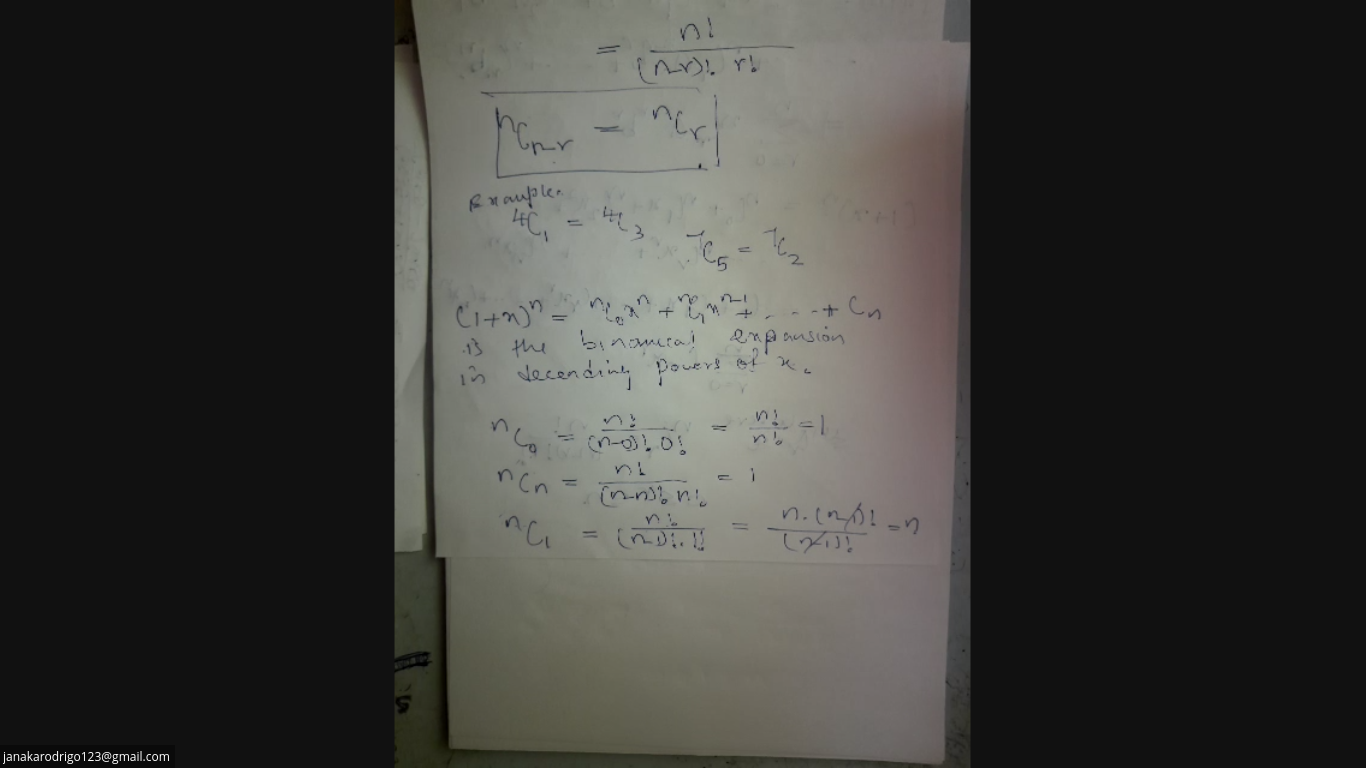 = n! / (n-r)! r!
ⁿCₙ₋ᵣ = ⁿCᵣ
Example.
⁴C₁ = ⁴C₃
⁷C₅ = ⁷C₂
(1+x)ⁿ = ⁿC₀xⁿ + ⁿC₁xⁿ⁻¹ + . - - - + Cₙ
is the binomical expansion
in decending powers of x.
ⁿC₀ = n! / (n-0)! 0! = n! / n! = 1
ⁿCₙ = n! / (n-n)! n! = 1
ⁿC₁ = n! / (n-1)! . 1! = n.(n-1)! / (n-1)! = n
janakarodrigo123@gmail.com